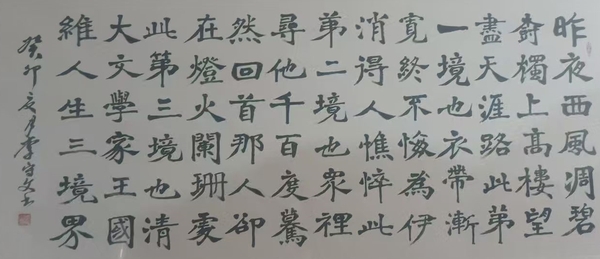 昨夜西風凋碧
樹獨上高樓望
盡天涯路此第
一境也衣帶漸
寬終不悔為伊
消得人憔悴此
第二境也眾裡
尋他千百度驀
然回首那人卻
在燈火闌珊處
此第三境也清
大文學家王國
維人生三境界
癸卯亥月李守文書